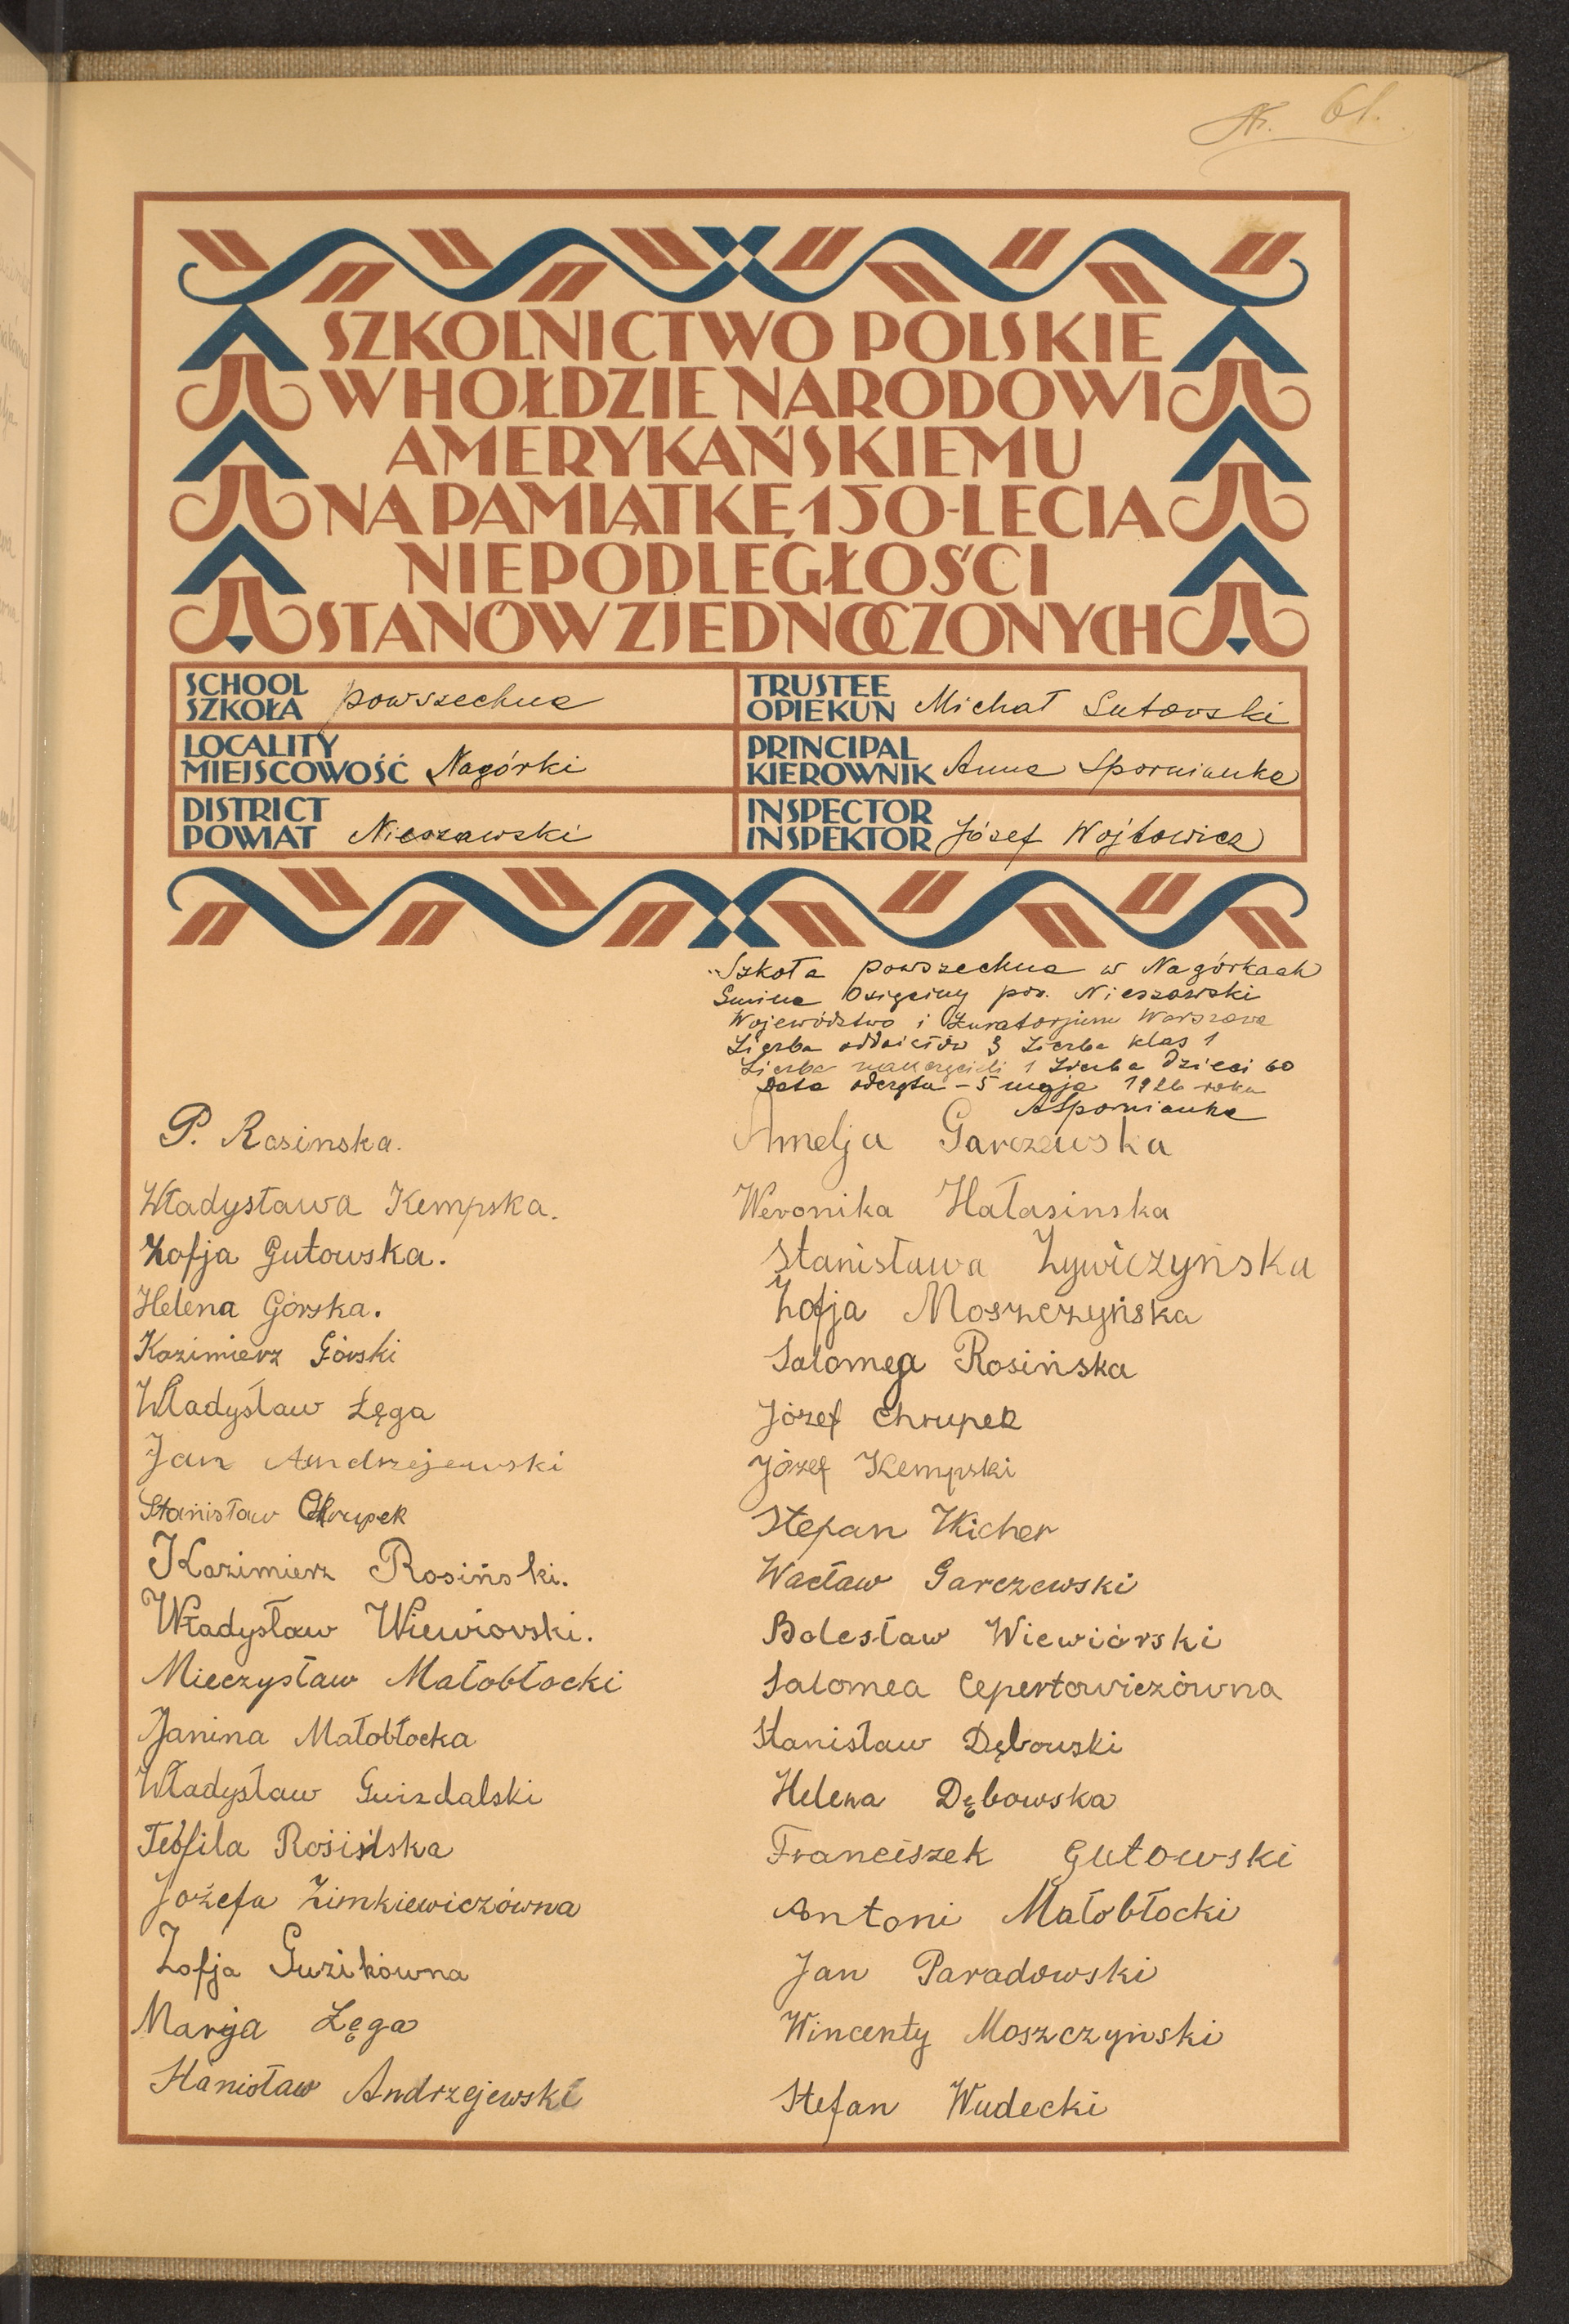 Nr. 61.
SZKOLNICTWO POLSKIE
W HOŁDZIE NARODOWI
AMERYKAŃSKIEMU
NA PAMIĄTKĘ 150-LECIA
NIEPODLEGŁOŚCI
STANÓW ZJEDNOCZONYCH
SCHOOL
SZKOŁA powszechna
TRUSTEE
OPIEKUN Michał Gutowski
LOCALITY
MIEJSCOWOŚĆ Nagórki
PRINCIPAL
KIEROWNIK Anna Spornianka
DISTRICT
POWIAT Nieszawski
INSPECTOR
INSPEKTOR Józef Wojtowicz
Szkoła powszechna w Nagórkach
Gmina Osięciny pow. Nieszawski
Województwo i Kuratorjum Warszawa
Liczba oddziałów 3 Liczba klas 1
Liczba nauczycieli 1 Liczba dzieci 60
Data odczytu - 5 maja 1926 roku
ASpornianka
P. Rosinska.
Władysława Kempska.
Zofja Gutowska.
Helena Górska.
Kazimierz Górski
Władysław Łęga
Jan Andrzejewski
Stanisław Chrupek
Kazimierz Rosiński.
Władysław Wiewiorski.
Mieczysław Małobłocki
Janina Małobłocka
Władysław Gwizdalski
Teófila Rosińska
Józefa Zimkiewiczówna
Zofja Guzikówna
Marja Łęga
Stanisław Andrzejewski
Amelja Garczewska
Weronika Hałasinska
Stanisława Żywiczyńska
Zofja Moszczyńska
Salomea Rosińska
Józef Chrupek
Józef Kempski
Stefan Wicher
Wacław Garczewski
Bolesław Wiewiórski
Salomea Cepertowiczówna
Stanisław Dębowski
Helena Dębowska
Franciszek Gutowski
Antoni Małobłocki
Jan Paradowski
Wincenty Moszczyński
Stefan Wudecki